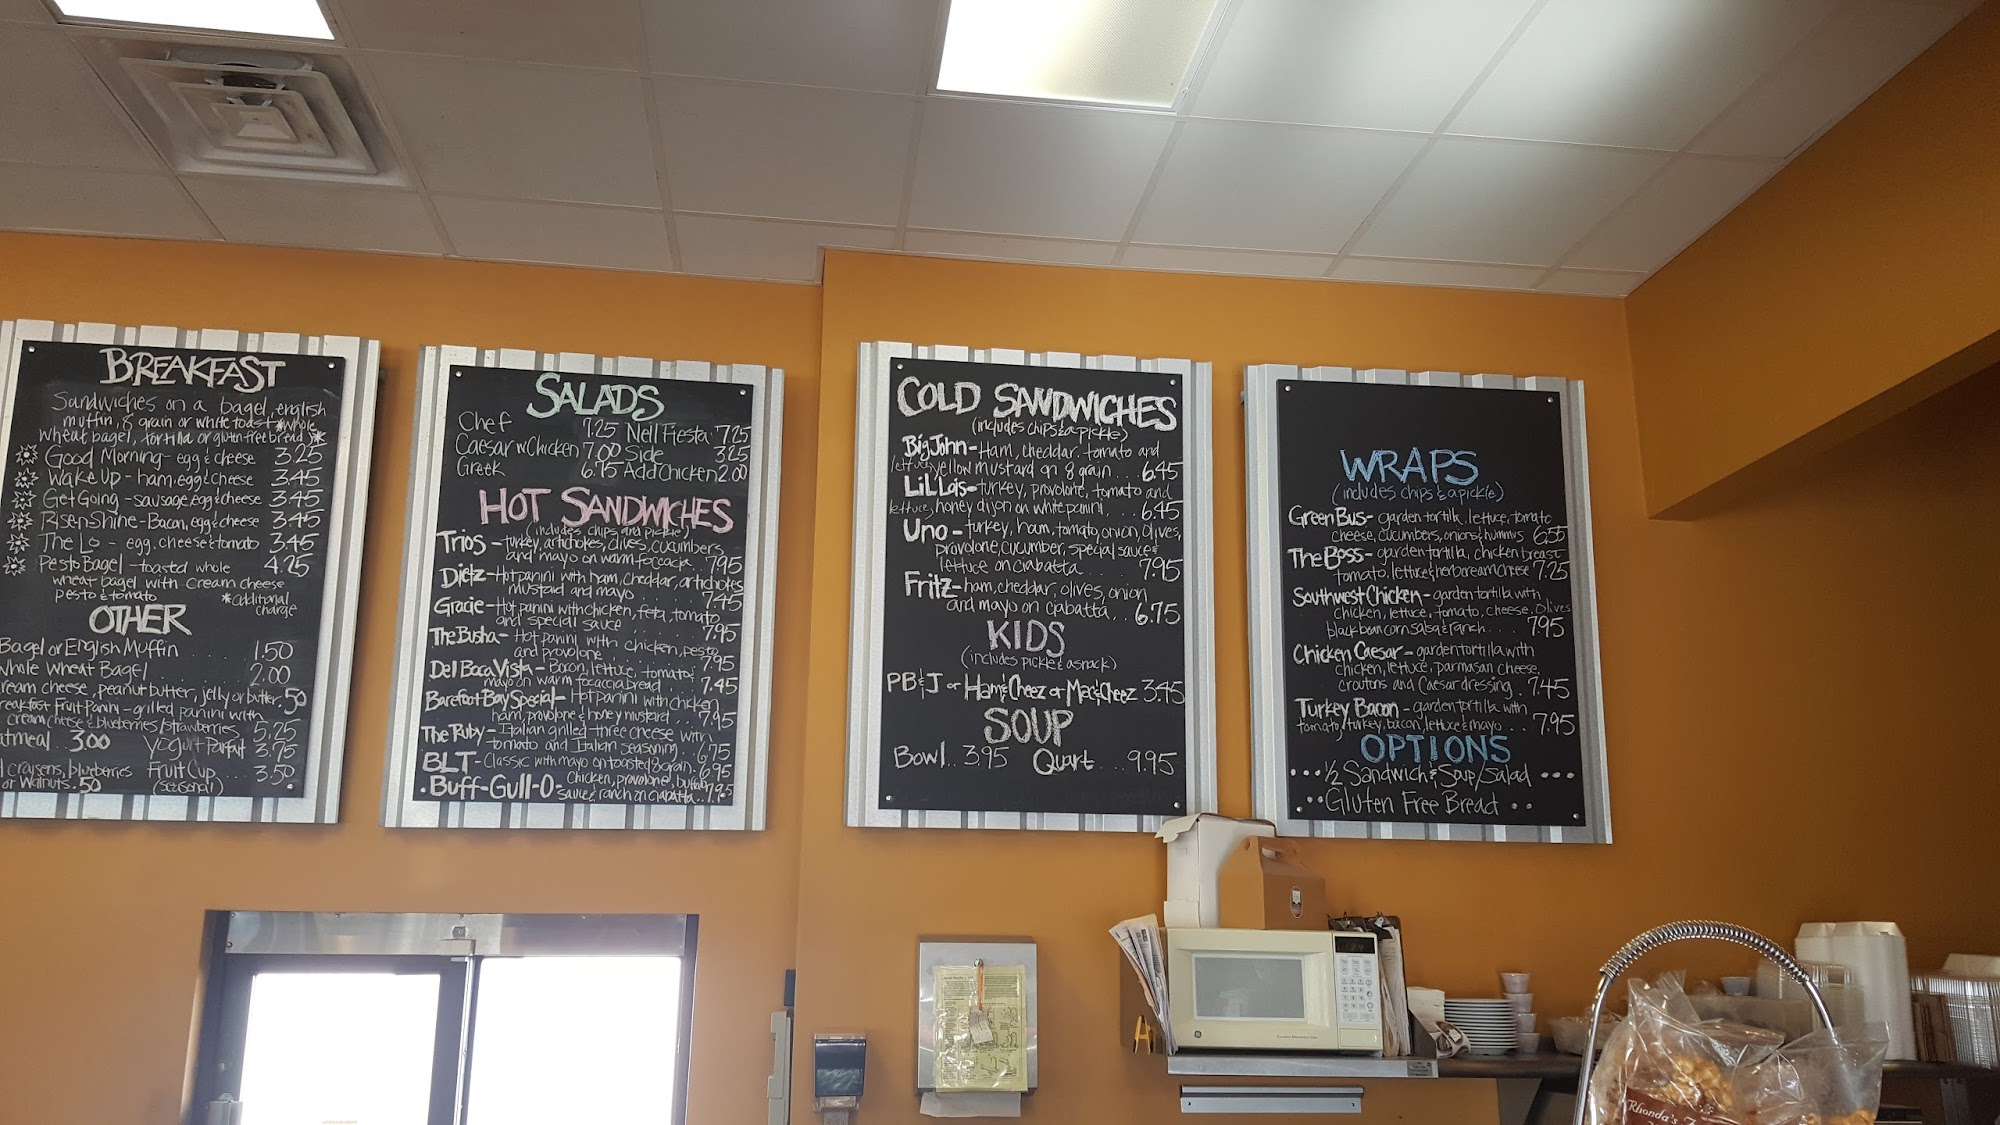 BREAKFAST
Sandwiches on a bagel, english
muffin, 8 grain or white toast *whole
wheat bagel, tortilla or gluten free bread)*
Good Morning - egg & cheese 3.25
Wake Up - ham, egg & cheese 3.45
Get Going - sausage, egg & cheese 3.45
Rise n Shine - Bacon, egg & cheese 3.45
The Lo - egg, cheese & tomato 3.45
Pesto Bagel - toasted whole 4.25
wheat bagel with cream cheese
pesto & tomato *additional
charge
OTHER
Bagel or English Muffin . . . . 1.50
Whole Wheat Bagel . . . . 2.00
cream cheese, peanut butter, jelly or butter .50
Breakfast Fruit Panini - grilled panini with
cream cheese & blueberries/strawberries 5.25
Oatmeal .. 3.00 Yogurt Parfait 3.75
craisens, blueberries Fruit Cup ... 3.50
or walnuts .50 (seasonal)
SALADS
Chef 7.25 Nell Fiesta 7.25
Caesar w Chicken 7.00 Side 3.25
Greek 6.75 Add Chicken 2.00
HOT SANDWICHES
(includes chips and pickle)
Trios - turkey, artichokes, olives, cucumbers
and mayo on warm focaccia .. 7.95
Dietz - Hot panini with ham, cheddar, artichokes
mustard and mayo . . . . 7.45
Gracie - Hot panini with chicken, feta, tomato
and special sauce . . . . 7.95
The Busha - Hot panini with chicken, pesto
and provolone . . . . 7.95
Del Boca Vista - Bacon, lettuce, tomato &
mayo on warm focaccia bread . 7.45
Barefoot Bay Special - Hot panini with chicken
ham, provolone & honey mustard ... 7.95
The Ruby - Italian grilled three cheese with
tomato and Italian seasoning .. 6.75
BLT - Classic with mayo on toasted 8 grain . 6.95
Buff-Gull-O - Chicken, provolone, buffalo
sauce & ranch on ciabatta .. 7.95
COLD SANDWICHES
(includes chips & a pickle)
Big John - Ham, cheddar, tomato and
lettuce, yellow mustard on 8 grain ... 6.45
Lil Lois - turkey, provolone, tomato and
lettuce, honey dijon on white panini ... 6.45
Uno - turkey, ham, tomato, onion, olives,
provolone, cucumber, special sauce &
lettuce on ciabatta . . . 7.95
Fritz - ham, cheddar, olives, onion
and mayo on ciabatta .. 6.75
KIDS
(includes pickle & a snack)
PB&J or Ham & Cheez or Mac & Cheez 3.45
SOUP
Bowl .. 3.95 Quart ... 9.95
WRAPS
(includes chips & a pickle)
Green Bus - garden tortilla, lettuce, tomato
cheese, cucumbers, onions & hummus 6.55
The Boss - garden tortilla, chicken breast
tomato, lettuce & herb cream cheese 7.25
Southwest Chicken - garden tortilla with
chicken, lettuce, tomato, cheese, olives
black bean corn salsa & ranch ... 7.95
Chicken Caesar - garden tortilla with
chicken, lettuce, parmasan cheese,
croutons and Caesar dressing . 7.45
Turkey Bacon - garden tortilla with
tomato, turkey, bacon, lettuce & mayo ... 7.95
OPTIONS
... ½ Sandwich & Soup/Salad ...
... Gluten Free Bread ..
Rhonda's